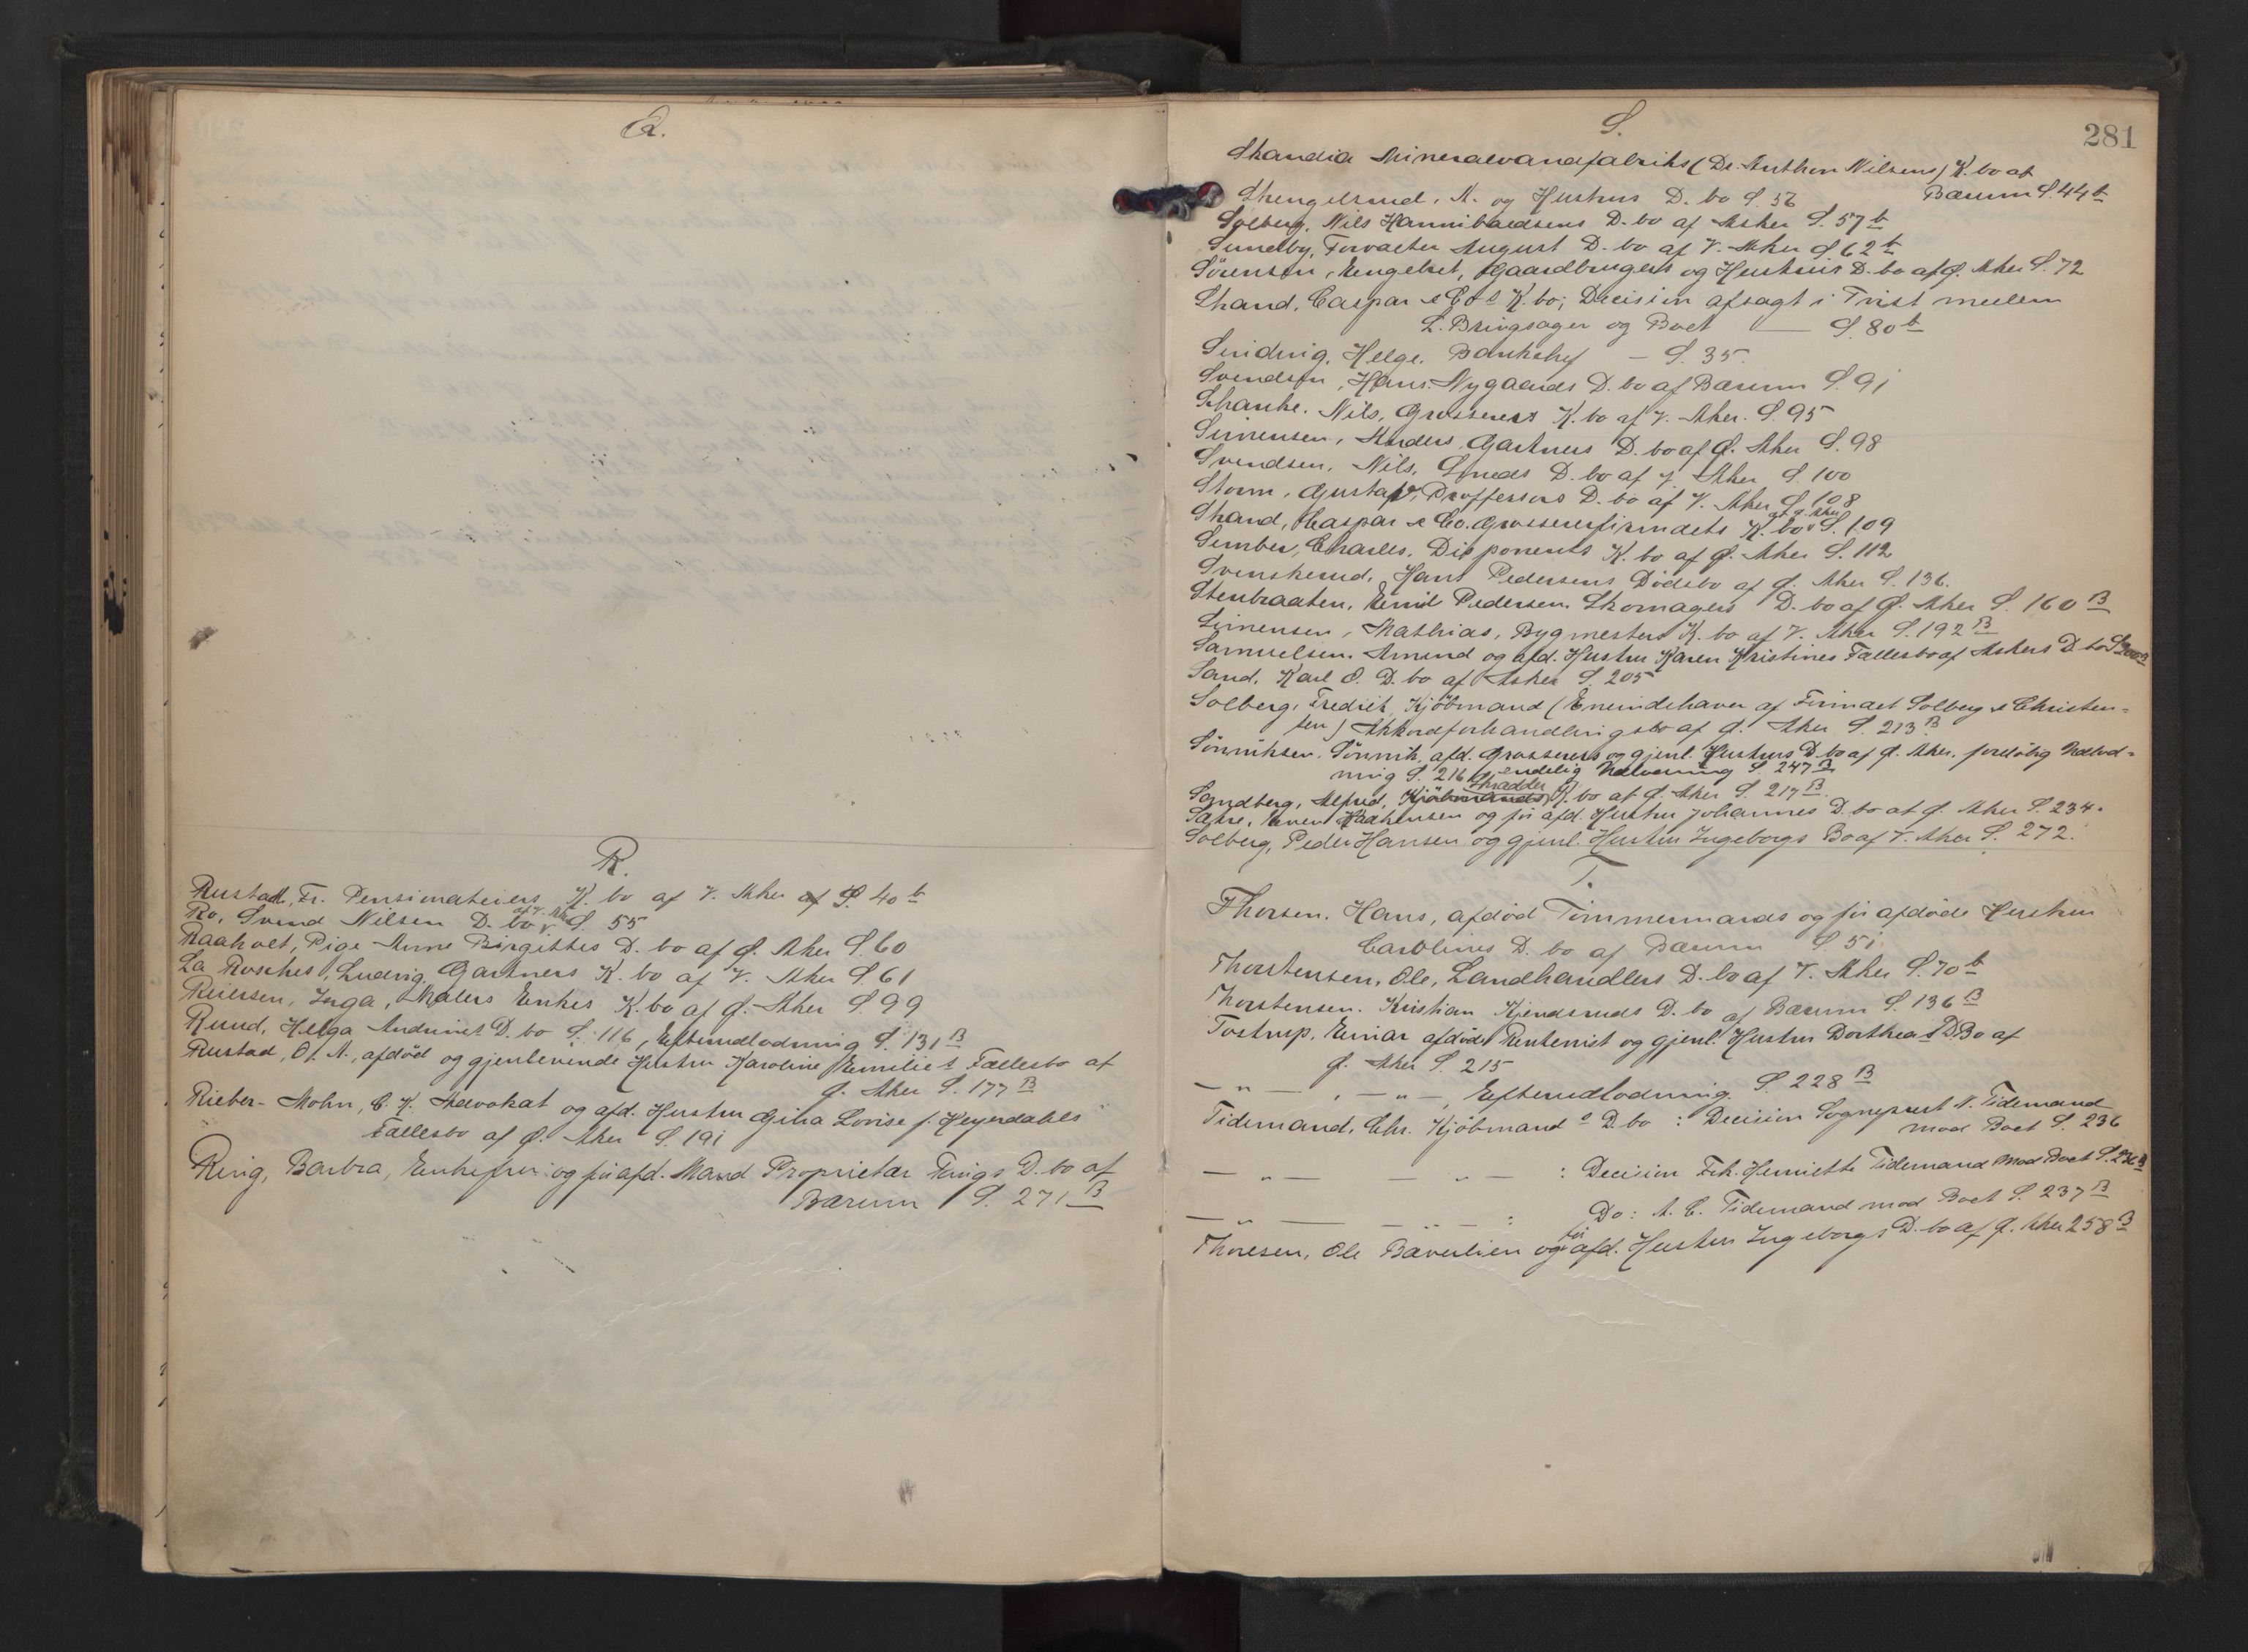 Q.
R.
Rustad, Fr. K. bo af V. Aker S. 40 b
Ro, Svend Nilsen D. bo af V. Aker S. 55
Raaholt, Pige Anne Birgittes D. bo af Ø. Aker S. 60
La Rosches, Ludvig, Gartners K. bo af V. Aker S. 61
Reiersen, Inga, Malers Enkes K. bo af Ø. Aker S. 99
Ruud, Helga Andrines D. bo S. 116, Efterudlodning S. 131 B
Rustad, O. A., afdød og gjenlevende Hustru Karoline Emilies Fællesbo af
Ø. Aker S. 177 B
Rieber-Mohn, C. K. Advokat og afd. Hustru Gina Lovise f. Heyerdahls
Fællesbo af Ø. Aker S. 191
Ring, Barbra, Enkefru og før afd. Mand Proprietær Rings D. bo af
Bærum S. 271 B
281
S.
Skandia Mineralvandfabriks (Dr. Anthon Nilsens) K. bo af
Bærum S. 44 b
Skengelsrud, A. og Hustrus D. bo S. 56
Solberg, Nils Hannibaldsens D. bo af Asker S. 57 b
Sundby, Forvalter August D. bo af V. Aker S 62 b
Sörensen, Engebret, Gaardbrugers og Hustrus D. bo af Ø. Aker S. 72
Strand, Caspar & Co s K. bo; Decision afsagt i Tvist mellem
L. Bringsager og Boet — S. 80 b
Sinding, Helge. Bankchef — S. 35
Svendsen, Hans Nygaards D. bo af Bærum S. 91
Schanke, Nils, Grosserers K. bo af V. Aker. S. 95
Simensen, Anders, Gartners D. bo af Ø. Aker S. 98
Svendsen, Nils, Smeds D. bo af V. Aker S. 100
Storm, Gustav, Proffessors D. bo af V. Aker S. 108
Strand, Caspar & Co. Grossererfirmaets K. bo af Ø. Aker S. 109
Sember, Charles, Disponents K. bo af Ø. Aker S. 112
Svenskerud, Hans Pedersens Dødsbo af Ø. Aker S. 136.
Stenbraaten, Emil Pedersen, Skomagers D. bo af Ø. Aker S. 160 B
Simensen, Mathias, Bygmesters K. bo af V. Aker S. 192 B
Samuelsen, Amund og afd. Hustru Karen Kristines Fællesbo af Askers D. bo S. 200 B
Sand, Karl O. D. bo af Asker S. 205
Solberg, Fredrik, Kjöbmand (Eneindehaver af Firmaet Solberg & Christen=
sen) Akkordforhandlingsbo af Ø. Aker S. 213 B
Sönniksen, Sönnik, afd. Grosserers og gjenl. Hustrus D. bo af Ø. Aker, foreløbig Udlod=
ning S. 216, endelig Udlodning S. 247 B
Sandberg, Alfred, Kjöbmands Skrædder K. bo af Ø. Aker S. 217 B.
Sætre, Even Haakensen og før afd. Hustru Johannes D. bo af Ø. Aker S. 234.
Solberg, Peder Hansen og gjenl. Hustru Ingeborgs Bo af V. Aker S. 272.
T.
Thorsen, Hans, afdød Tømmermands og før afdøde Hustru
Carolines D. bo af Bærum S. 51
Thorstensen, Ole, Landhandlers D. bo af V. Aker S. 70 b
Thorstensen, Kristian Kjendsruds D. bo af Bærum S. 136 B
Tostrup, Einar afdøde Rentenist og gjenl. Hustru Dortheas D Bo af
Ø. Aker S. 215
— " — , — " — , Efterudlodning. S. 228 B
Tidemand, Chr. Kjöbmand s D. bo : Decision Sogneprest N. Tidemand
mod Boet S. 236
— " — — " — : Decision Frk. Henriette Tidemand mod Boet S. 236 B
— " — — " — : Do: A. C. Tidemand mod Boet S. 237 B
Thoresen, Ole Bæverlien og før afd. Hustru Ingeborgs D. bo af Ø. Aker 258 B